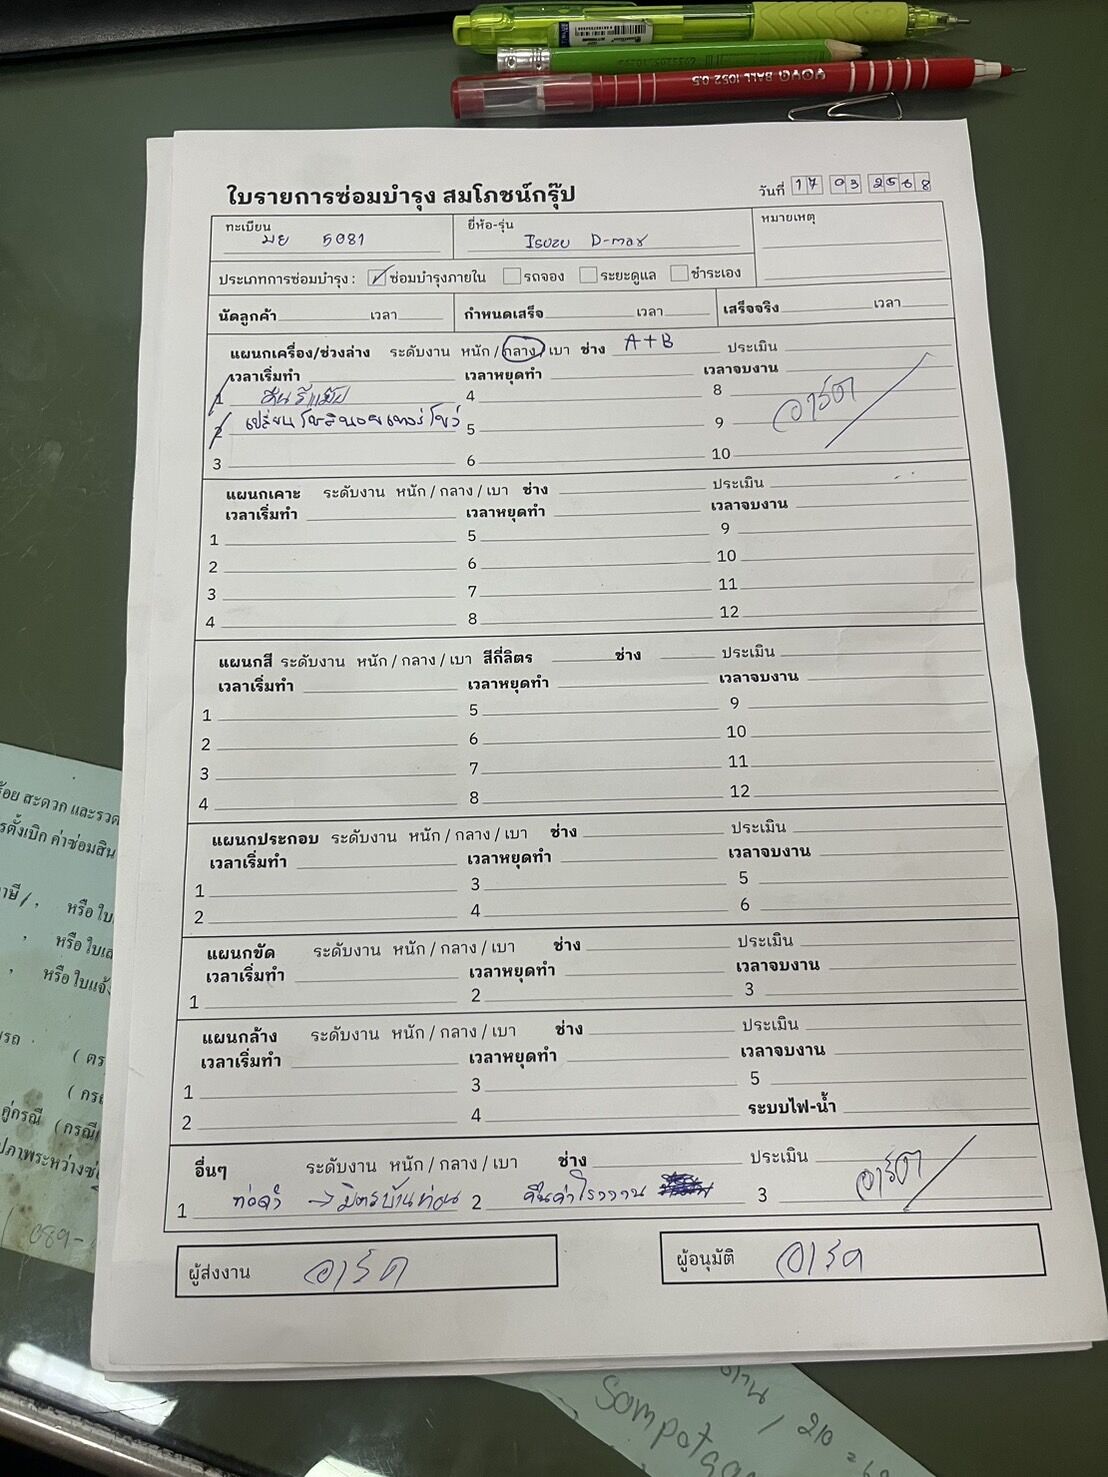 ใบรายการซ่อมบำรุง สมโภชน์กรุ๊ป
วันที่ 17 03 2568
ทะเบียน
ยี่ห้อ-รุ่น
หมายเหตุ
มย 5081
Isuzu D-max
ประเภทการซ่อมบำรุง : ซ่อมบำรุงภายใน รถจอง ระยะดูแล ชำระเอง
นัดลูกค้า เวลา กำหนดเสร็จ เวลา เสร็จจริง เวลา
แผนกเครื่อง/ช่วงล่าง ระดับงาน หนัก / กลาง / เบา ช่าง A+B ประเมิน
เวลาเริ่มทำ เวลาหยุดทำ เวลาจบงาน
1 4 8
อาร์ต
2 เปลี่ยนโซลินอยเทอร์โบว์ 5 9
3 6 10
แผนกเคาะ ระดับงาน หนัก / กลาง / เบา ช่าง ประเมิน
เวลาเริ่มทำ เวลาหยุดทำ เวลาจบงาน
1 5 9
2 6 10
3 7 11
4 8 12
แผนกสี ระดับงาน หนัก / กลาง / เบา สีกี่ลิตร ช่าง ประเมิน
เวลาเริ่มทำ เวลาหยุดทำ เวลาจบงาน
1 5 9
2 6 10
3 7 11
4 8 12
แผนกประกอบ ระดับงาน หนัก / กลาง / เบา ช่าง ประเมิน
เวลาเริ่มทำ เวลาหยุดทำ เวลาจบงาน
1 3 5
2 4 6
แผนกขัด ระดับงาน หนัก / กลาง / เบา ช่าง ประเมิน
เวลาเริ่มทำ เวลาหยุดทำ เวลาจบงาน
1 2 3
แผนกล้าง ระดับงาน หนัก / กลาง / เบา ช่าง ประเมิน
เวลาเริ่มทำ เวลาหยุดทำ เวลาจบงาน
1 3 5
2 4 ระบบไฟ-น้ำ
อื่นๆ ระดับงาน หนัก / กลาง / เบา ช่าง ประเมิน
1 → มิตรบ้านท่อน 2 คืนค่าโรงงาน 3 อาร์ต
ผู้ส่งงาน อาร์ต
ผู้อนุมัติ อาร์ต
ร้อย สะดวก และรวด
รตั้งเบิก ค่าซ่อมสิน
หรือ ใบ
หรือ ใบเส
หรือ ใบแจ้ง
( ตร
( กรณ
คู่กรณี (กรณี
089-
210 =